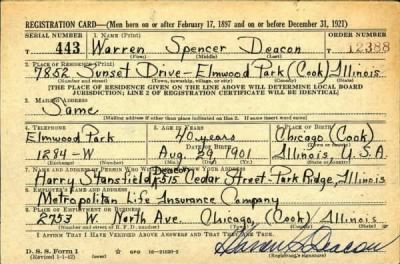 REGISTRATION CARD—(Men born on or after February 17, 1897 and on or before December 31, 1921)
SERIAL NUMBER 1. NAME (Print) ORDER NUMBER
443 Warren Spencer Deacon 12388
(First) (Middle) (Last)
2. PLACE OF RESIDENCE (Print)
7852 Sunset Drive-Elmwood Park (Cook) Illinois
(Number and street) (Town, township, village, or city) (County) (State)
[THE PLACE OF RESIDENCE GIVEN ON THE LINE ABOVE WILL DETERMINE LOCAL BOARD
JURISDICTION; LINE 2 OF REGISTRATION CERTIFICATE WILL BE IDENTICAL]
3. MAILING ADDRESS
Same
[Mailing address if other than place indicated on line 2. If same insert word same]
4. TELEPHONE 5. AGE IN YEARS 6. PLACE OF BIRTH
Elmwood Park 40 years Chicago (Cook)
DATE OF BIRTH (Town or county)
1284-W Aug. 29 1901 Illinois U.S.A
(Exchange) (Number) (Mo.) (Day) (Yr.) (State or country)
7. NAME AND ADDRESS OF PERSON WHO WILL ALWAYS KNOW YOUR ADDRESS
Deacon
Harry Stansfield, 1515 Cedar Street-Park Ridge, Illinois
8. EMPLOYER'S NAME AND ADDRESS
Metropolitan Life Insurance Company
9. PLACE OF EMPLOYMENT OR BUSINESS
2753 W. North Ave. Chicago, (Cook) Illinois
(Number and street or R. F. D. number) (Town) (County) (State)
I AFFIRM THAT I HAVE VERIFIED ABOVE ANSWERS AND THAT THEY ARE TRUE.
D. S. S. Form 1
(Revised 1-1-42) (over) GPO 16—21630-2
Warren S Deacon
(Registrant's signature)